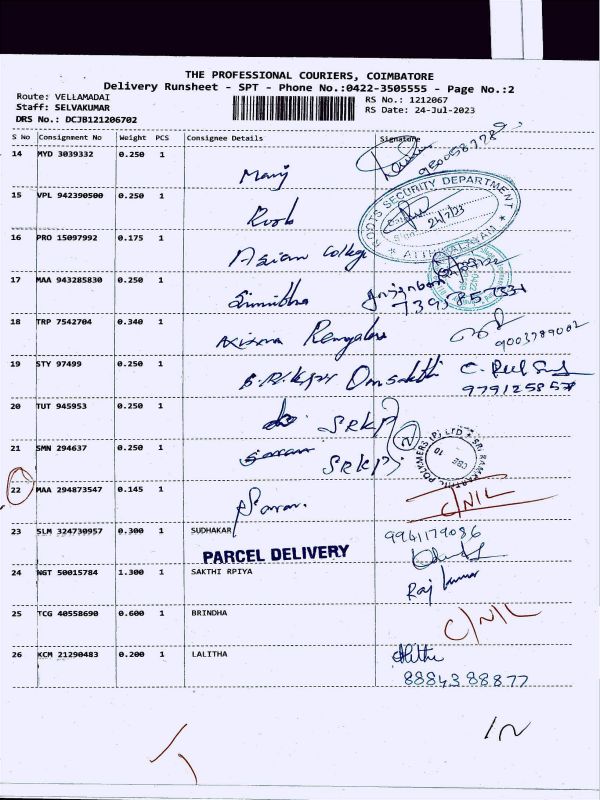 THE PROFESSIONAL COURIERS, COIMBATORE
Delivery Runsheet - SPT - Phone No.:0422-3505555 - Page No.:2
Route: VELLAMADAI
RS No.: 1212067
Staff: SELVAKUMAR
RS Date: 24-Jul-2023
DRS No.: DCJB121206702
S No Consignment No Weight PCS Consignee Details Signature
14 MYD 3039332 0.250 1
15 VPL 942390500 0.250 1
ROOTS SECURITY DEPARTMENT
24/7/23
16 PRO 15097992 0.175 1 Asian College
17 MAA 943285830 0.250 1
18 TRP 7542704 0.340 1
9003989002
19 STY 97499 0.250 1
20 TUT 945953 0.250 1 SRKP
2
21 SMN 294637 0.250 1 SRKP
CBE
10
22 MAA 294873547 0.145 1 C/NIL
23 SLM 324730957 0.300 1 SUDHAKAR 9941179086
PARCEL DELIVERY
24 NGT 50015784 1.300 1 SAKTHI RPIYA Raj kumar
25 TCG 40558690 0.600 1 BRINDHA C/NIL
26 KCM 21290483 0.200 1 LALITHA
88843 88877